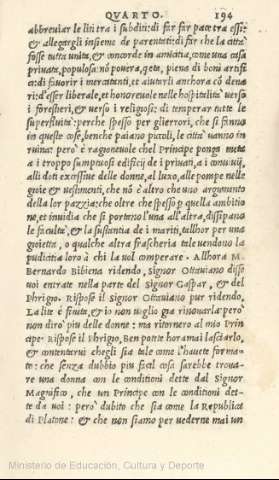 QVARTO. 194
abbreuiar le liti tra i subditi: di far far pace tra essi:
& allegargli insieme de parentati: di far che la città
fosse tutta unita, & concorde in amicitia, come una casa
priuata, populosa: nõ pouera, qeta, piena di boni artifi
ci: di fauorir i mercatanti, et aiutarli anchora cõ dena
ri: d'esser liberale, et honoreuole nelle hospitalità uerso
i forestieri, & uerso i religiosi: di temperar tutte le
superfluità: perche spesso per gli errori, che si fanno
in queste cose, benche paiano piccoli, le città uanno in
ruina: però è ragioneuole chel Principe ponga meta
a i troppo sumptuosi edificij de i priuati, a i conuiuij,
alli doti excessiue delle donne, al luxo, alle pompe nelle
gioie & uestimenti, che nõ è altro che uno argumento
della lor pazzia: che oltre che spesso per quella ambitio
ne, et inuidia che si portono l'una all'altra, dissipano
le faculta, & la sustantia de i mariti, talhor per una
gioietta, o qualche altra frascheria tale uendono la
pudicitia loro à chi la uol comperare. Allhora M.
Bernardo Bibiena ridendo, Signor Ottauiano disse
uoi entrate nella parte del Signor Gaspar, & del
Phrigio. Rispose il Signor Ottauiano pur ridendo,
La lite è finita, & io non uoglio gia rinouarla: però
non dirò piu delle donne: ma ritornero al mio Prin
cipe. Rispose il Phrigio, Ben potete hora mai lasciarlo,
& contentarui ch'egli sia tale come l'hauete forma-
to: che senza dubbio piu facil cosa sarebbe troua-
re una donna con le conditioni dette dal Signor
Magnifico, che un Principe con le conditioni det-
te da uoi: però dubito che sia come la Republica
di Platone: & che non siamo per uederne mai un
Ministerio de Educación, Cultura y Deporte